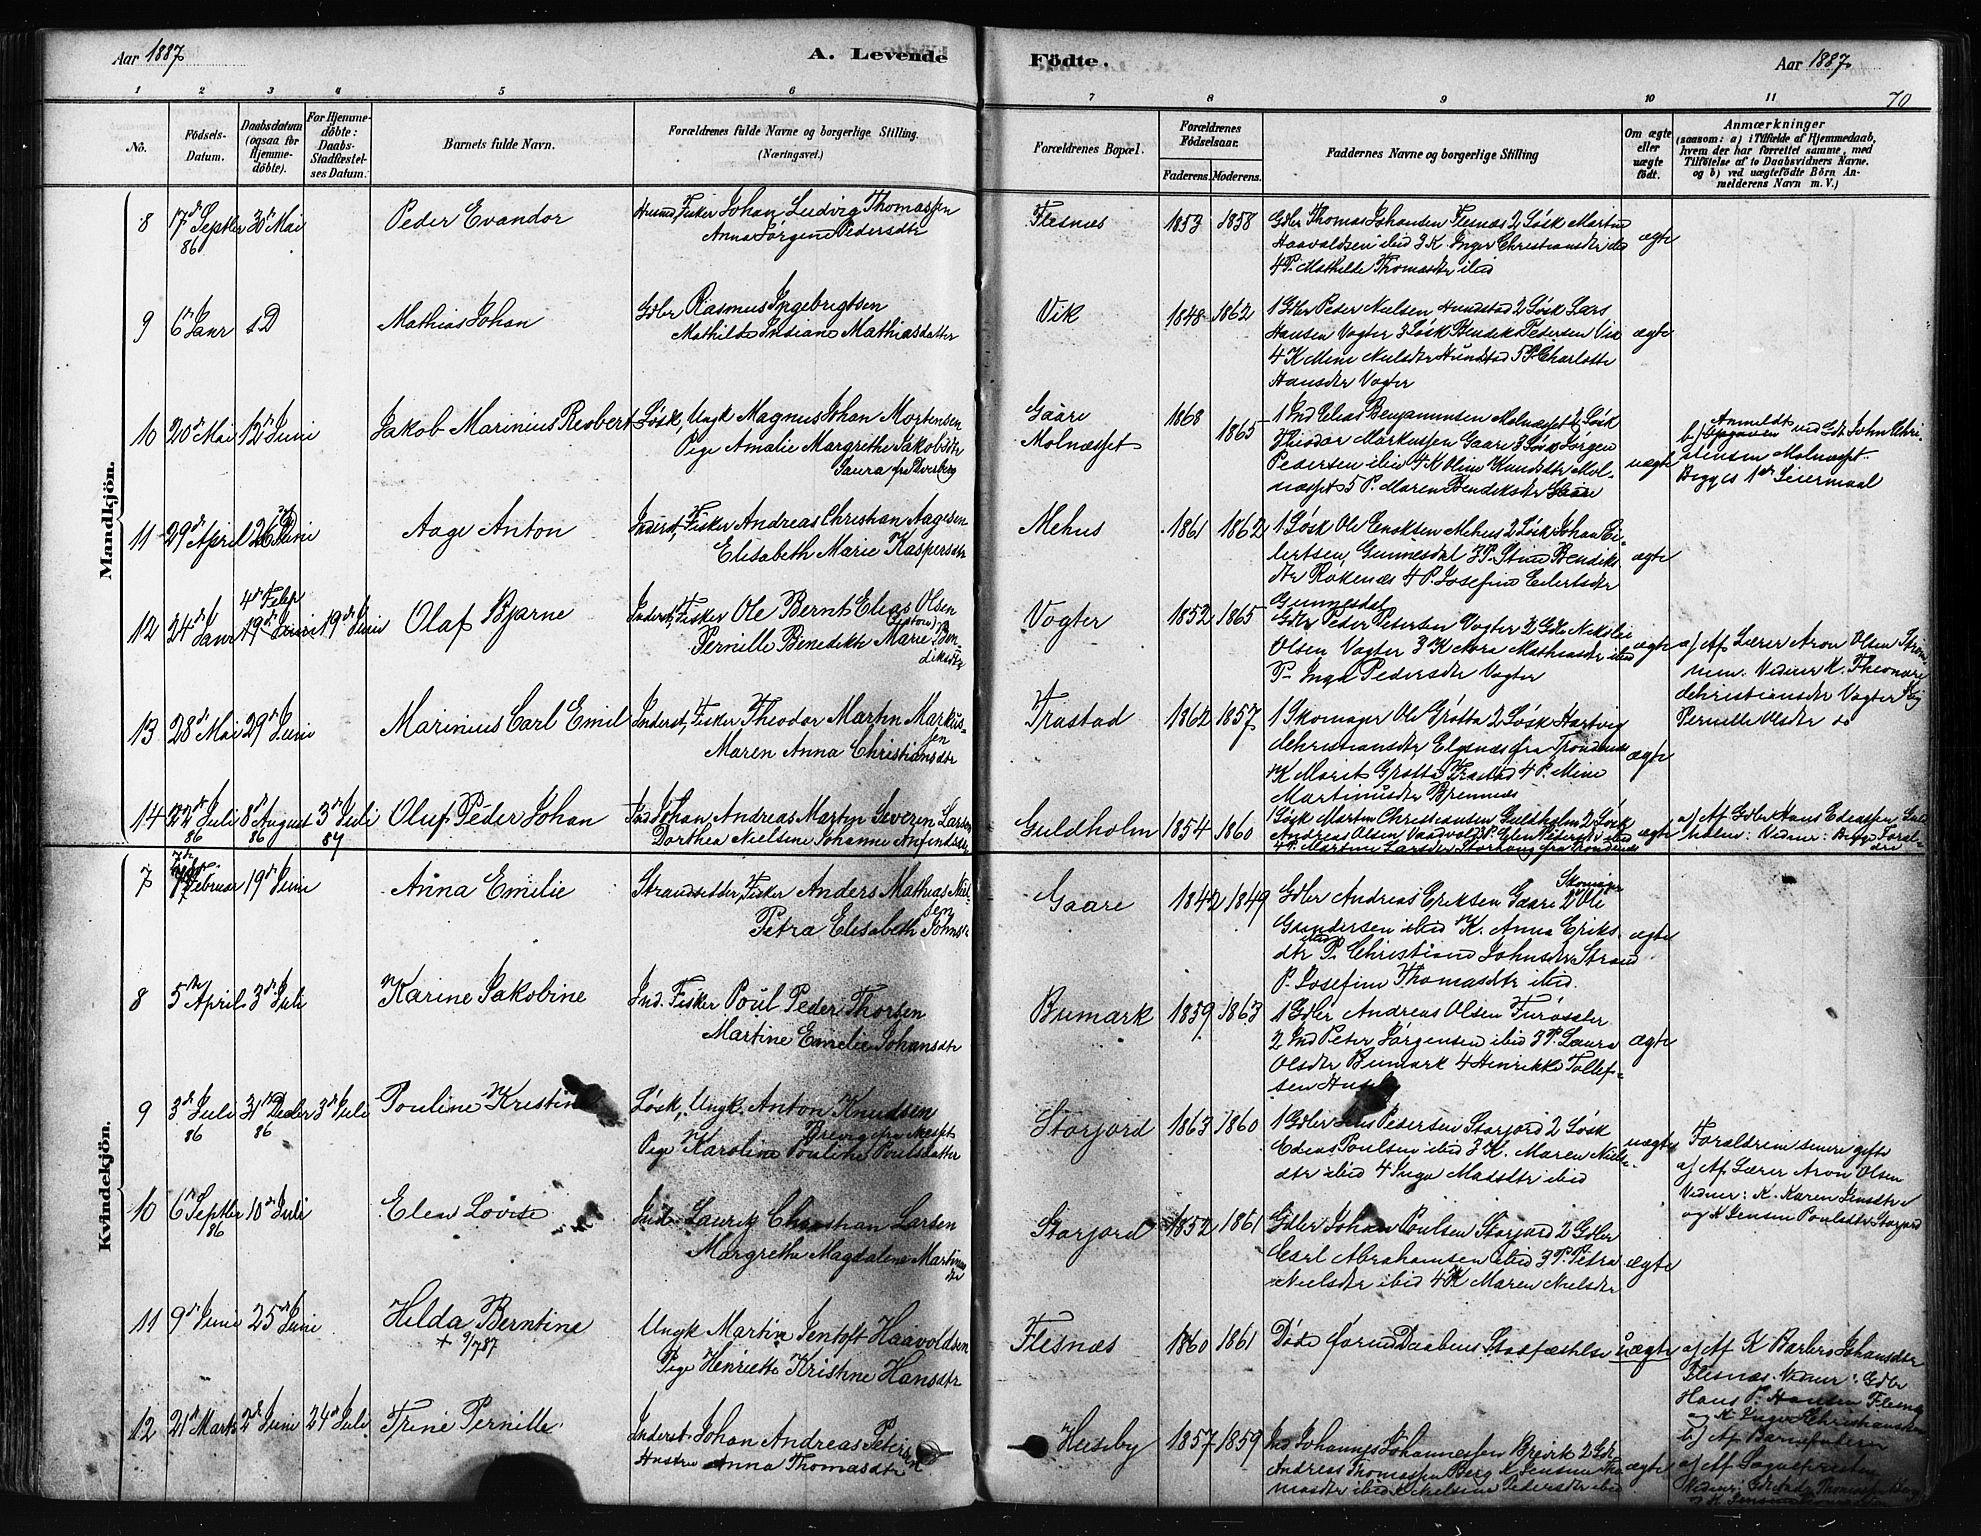 Aar 1887
A. Levende
Fødte.
Aar 1887
70
1 2 3 4 5 6 7 8 9 10 11
No.
Födsels-
Datum.
Daabsdatum
(ogsaa for
Hjemme-
döbte).
For Hjemme-
döbte:
Daabs-
Stadfæstel-
ses Datum.
Barnets fulde Navn.
Forældrenes fulde Navne og borgerlige Stilling.
(Næringsvei.)
Forældrenes Bopæl.
Forældrenes
Födselsaar.
Faderens. Moderens.
Faddernes Navne og borgerlige Stilling
Om ægte
eller
uægte
født.
Anmærkninger
(saasom: a) i Tilfælde af Hjemmedaab,
hvem der har forrettet samme, med
Tilføielse af to Daabsvidners Navne.
og b) ved uægtefödte Börn An-
melderens Navn m. V.)
Mandkjön.
8 17de Septbr 86 30 Mai
Peder Evandor
Fisker Johan Ludvig Thomassen
Anna Jørgine Pedersdtr
Flesnæs
1853 1858
Gdbr Thomas Johansen Flesnæs 2 Løsk Martin
Haavaldsen ibid 3 K. Inger Christiansdtr ibid
4 P. Mathilde Thomasdtr ibid
ægte
9 6 Janr s.D
Mathias Johan
Gdbr Rasmus Ingebrigtsen
Mathilde Indiane Mathiasdatter
Vik
1848 1862
1 Gdbr Peder Nielsen Hundstad 2 Løsk Lars
Hansen Vogter 3 Løsk Bendik Pedersen Vik
4 K Mine Nielsdtr Hundstad 5 P. Charlotte
Hansdtr Vogter
ægte
10 20de Mai 12te Juni
Jakob Marinius Reobert
Løsk, Ungk Magnus Johan Mortensen
Pige Amalie Margrethe Jakobsdtr
Gaare
Molnæsset
1868
1865
1 Ind Elias Benjaminsen Molnæsset 2 Løsk
Theodor Markussen Gaare 3 Løsk Jørgen
Pedersen ibid 4 K Oline Knudsdtr Mol-
næsset 5 P. Maren Bendiksdtr Gaare
uægte
Anmeldt
b) Opgaven ved Gdb John Chri-
stensen Molnæsset
Begges 1ste Leiermaal
11 29de April 26 Juni
Aage Anton
Inderst, Fisker Andreas Christian Aagesen
Elisabeth Marie Kaspersdtr
Mehus
1861 1862
1 Løsk Ole Enoksen Mehus 2 Løsk Johan Ei-
lertsen Gunnesdal 3 P. Stine Bendiks
dtr Røkenæs 4 P. Josefine Eilertsdtr
Gunnesdal
ægte
12 24de Janr 4de Febr 19de Juni 19de Juni
Olaf Bjarne
Inderst, Fisker Ole Bernt Elias Olsen
Pernille Benedikte Marie Ben-
diksdtr
Vogter
1852 1865
Gdbr Peder Petersen Vogter 2 Gdb Nikolai
Olsen Vogter 3 K Nora Mathiasdtr ibid
P. Inga Pedersdtr Vogter
ægte
a) Af Lærer Aron Olsen
Vidner K. Theonore
Christiansdtr Vogter Pig
Pernille Olsdtr do
13 28de Mai 29de Juni
Marinius Carl Emil
Inderst, Fisker Theodor Martin Markus-
sen
Maren Anna Christiansdtr
Trastad
1862 1857
1 Skomager Ole Grøtta 2 Løsk Hartvig
Christiansdtr Elgsnæs fra Trondenæs
K Marit Grøtta Trastad 4 P. Mine
Martinusdtr Brennæs
ægte
14 22de Juli 86 8de August 86 3de Juli 87
Oluf Peder Johan
Ind Johan Andreas Martin Severin Larsen
Dorthea Nielsine Johanne
Guldholm
1854 1860
1 Løsk Martin Christiansen Guldholm 2 Løsk
Andreas Olsen Vandvold P. Elen Petersdtr ibid
4 P. Martine Larsdtr Storhaug fra Trondenæs
ægte
a) Af Gdbr Hans Edeassen Guld
holm: Vidner: Begge Foræl-
dre
Kvindekjön.
7 Februar 19de Juni
Anna Emilie
Strandsidder, Fisker Anders Mathias Niel-
sen
Petra Elisabeth Johns
Gaare
1842 1849
Skomager
Gdbr Andreas Eriksen Gaare 2 Ole
Gundersen ibid K. Anna Eriks-
dtr ibid P. Christiane Johnsdtr Strand
P. Josefine Thomasdtr ibid.
ægte
8 5te April 3de Juli
Karine Jakobine
Ind. Fisker Poul Peder Thorsen
Martine Emelie Johansdtr
Bremark
1859 1863
1 Gdbr Andreas Olsen
2 Ind Peter Jørgensen ibid 3 P. Laura
Olsdtr Bremark 4 Henrikke Tollef-
sen
ægte
9 3de Juli 86 31 Decbr 86 3de Juli
Pouline Kristine
Løsk, Ungk. Anton Knudsen
Pige Karoline Pouline Poulsdatter
Storjord
1863 1860
1 Gdbr Jens Pedersen Storjord 2 Løsk
Edeas Poulsen ibid 3 K. Maren Niels-
dtr ibid 4 Inga Madsdtr ibid
uægte
Forældrene senere gifte
a) Af Lærer Aron Olsen
Vidner: K. Karen Jensdtr
og K Jensine Poulsdtr Storjord
10 6te Septbr 86 10de Juli
Elen Lovise
Inds. Lauritz Christian Larsen
Margrethe Magdalene Martinus
dtr
Storjord
1852 1861
Gdbr Johan Poulsen Storjord 2 Gdbr
Carl Abrahamsen ibid 3 P. Petra
Nielsdtr ibid 4 K Maren Nielsdtr
ægte
11 9de Juni 25de Juni
Hilda Berntine
+ 9/7 87
Ungk Martin Jentoft Haavoldsen
Pige Henriette Kristine Hansdtr
Flesnæs
1860 1861
Døde forend Daabens Stadfæstelse
uægte
a) Af K Barbro Johansdtr
Flesnæs. Vidner: Gdbr
Hans P. Hansen Flesnæs
og K Inger Christiansdtr
b) Af Barnefaderen
12 21de Marts 2de Juni 24de Juli
Trine Pernille
Inderst Johan Andreas Petersen
Hustru Anna Thomasdtr
Husby
1857 1859
Ind Johannes Johannessen Breivik 2 Gdb
Andreas Thomassen Berg K Jensine Tho
masdtr ibid K Nielsine Pedersdtr ibid
ægte
a) Af Sognepresten